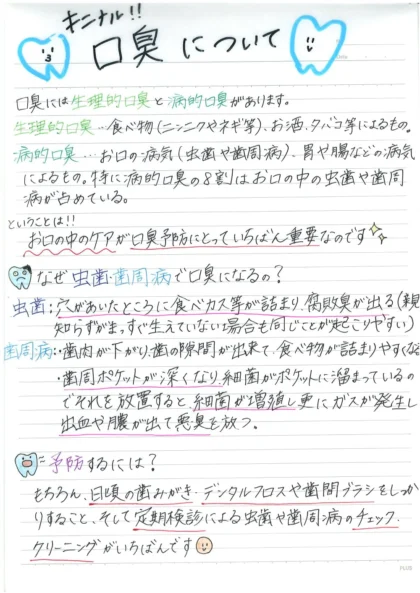 キニナル!!
口臭について
口臭には生理的口臭と病的口臭があります。
生理的口臭…食べ物(ニンニクやネギ等)、お酒、タバコ等によるもの。
病的口臭…お口の病気(虫歯や歯周病)、胃や腸などの病気
によるもの。特に病的口臭の8割はお口の中の虫歯や歯周
病が占めている。
ということは!!
お口の中のケアが口臭予防にとっていちばん重要なのです
なぜ虫歯・歯周病で口臭になるの?
虫歯:穴があいたところに食べカス等が詰まり、腐敗臭が出る(親
知らずがまっすぐ生えていない場合も同じことが起こりやすい)
歯周病:・歯肉が下がり、歯の隙間が出来て、食べ物が詰まりやすくなる
・歯周ポケットが深くなり、細菌がポケットに溜まっているの
でそれを放置すると、細菌が増殖し更にガスが発生し
出血や膿が出て悪臭を放つ。
予防するには?
もちろん、日頃の歯みがき、デンタルフロスや歯間ブラシをしっか
りすること、そして定期検診による虫歯や歯周病のチェック、
クリーニングがいちばんです